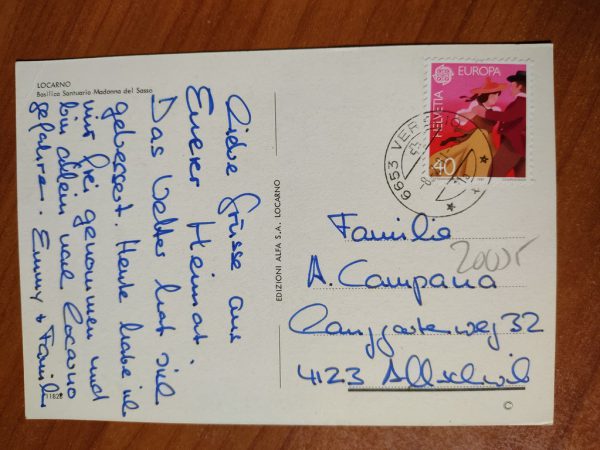 LOCARNO
Basilica Santuario Madonna del Sasso
Liebe Grüsse aus
Eurer Heimat.
Das Wetter hat sich
gebessert. Heute habe ich
mir frei genommen und
bin allein nach Locarno
gefahren. Emmy + Familie
11828
EDIZIONI ALFA S.A. LOCARNO
EUROPA
CEPT
HELVETIA
40
6653 VER
Familie
A. Campana
Langgartenweg 32
4123 Allschwil
2000S
©